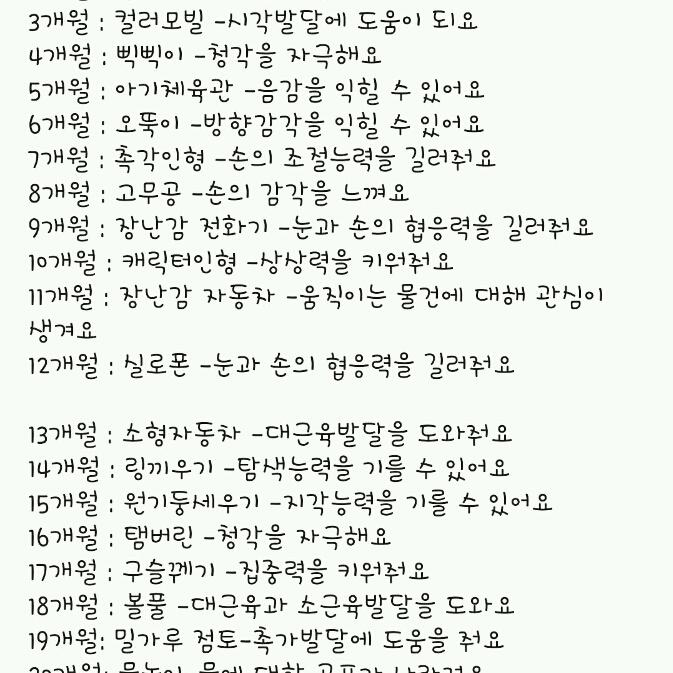 3개월 : 컬러모빌 -시각발달에 도움이 되요
4개월 : 삑삑이 -청각을 자극해요
5개월 : 아기체육관 -음감을 익힐 수 있어요
6개월 : 오뚝이 -방향감각을 익힐 수 있어요
7개월 : 촉각인형 -손의 조절능력을 길러줘요
8개월 : 고무공 -손의 감각을 느껴요
9개월 : 장난감 전화기 -눈과 손의 협응력을 길러줘요
10개월 : 캐릭터인형 -상상력을 키워줘요
11개월 : 장난감 자동차 -움직이는 물건에 대해 관심이
생겨요
12개월 : 실로폰 -눈과 손의 협응력을 길러줘요
13개월 : 소형자동차 -대근육발달을 도와줘요
14개월 : 링끼우기 -탐색능력을 기를 수 있어요
15개월 : 원기둥세우기 -지각능력을 기를 수 있어요
16개월 : 탬버린 -청각을 자극해요
17개월 : 구슬꿰기 -집중력을 키워줘요
18개월 : 볼풀 -대근육과 소근육발달을 도와요
19개월: 밀가루 점토-촉가발달에 도움을 줘요